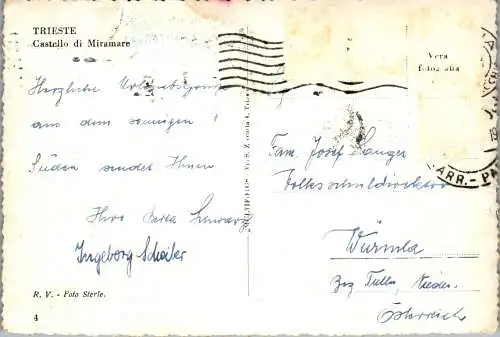 TRIESTE
Castello di Miramare
Vera
fotografia
Herzliche Urlaubsgrüße
aus dem sonnigen
Süden sendet Ihnen
Ihre Berta
Ingeborg
R. V. - Foto Sterle.
4
MULTIFOTOS - Via S. Zenone 4,
Fam. Josef
Volksschuldirektor
Würmla
Bez Tulln, Nieder-
Österreich
ARR.-PA